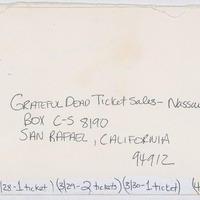 GRATEFUL DEAD TICKET SALES - Nassau
BOX C-S 8190
SAN RAFAEL, CALIFORNIA
94912
/28-1 ticket) (3/29-2 tickets) (3/30-1 ticket) (4